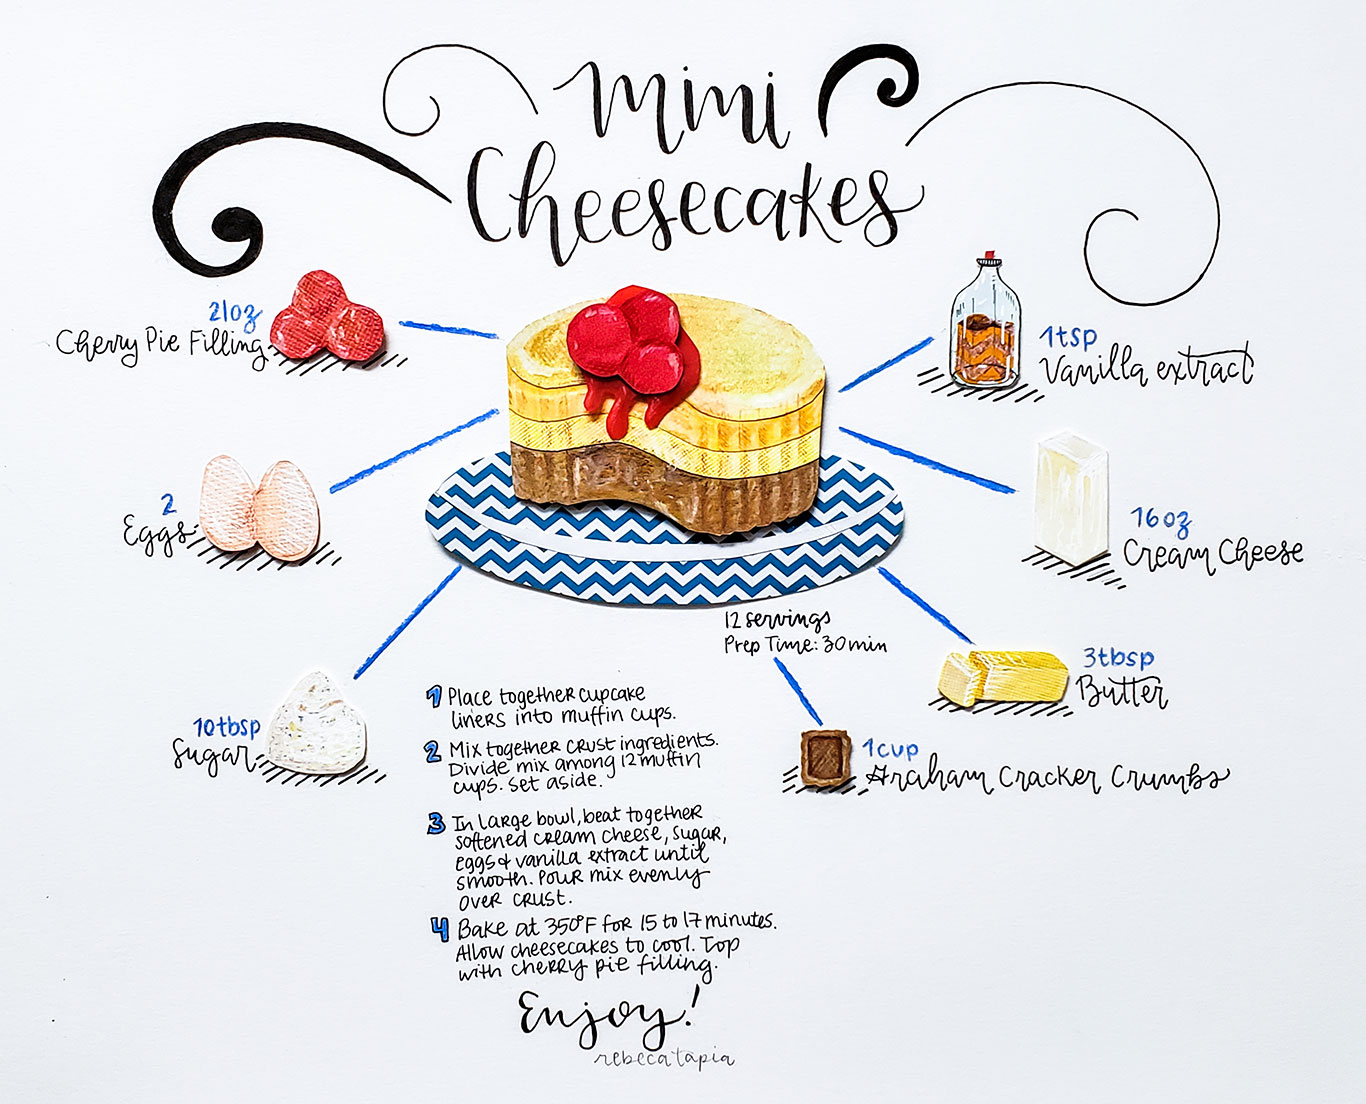 Mini
Cheesecakes
21oz
Cherry Pie Filling
1tsp
Vanilla extract
2
Eggs
16oz
Cream Cheese
12 servings
Prep Time: 30min
3tbsp
Butter
10tbsp
Sugar
1cup
Graham Cracker Crumbs
1 Place together cupcake
liners into muffin cups.
2 Mix together crust ingredients.
Divide mix among 12 muffin
cups. Set aside.
3 In large bowl, beat together
softened cream cheese, sugar,
eggs & vanilla extract until
smooth. Pour mix evenly
over crust.
4 Bake at 350°F for 15 to 17 minutes.
Allow cheesecakes to cool. Top
with cherry pie filling.
Enjoy!
rebecatapia